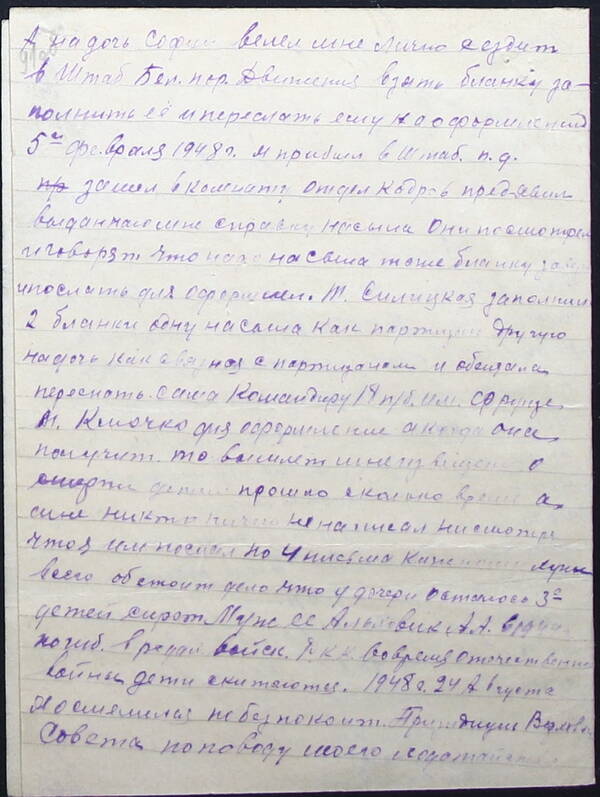 А на дочь Софию велел мне лично съездит
в Штаб Бел. пар. Движения взять бланку за-
полнить её и переслать ему на оформление
5го февраля 1948 г. я прибыл в Штаб. п. д.
пр зашел в комнату отдел Кадров предявил
выданную мне справку на сына Они посмотрели
и говорят что надо на сына тоже бланку
и послать для оформлен. Т. Силицкая заполнила
2 бланки одну на сына как партизан другую
на дочь как связная с партизанам и обещала
переслать сама Командиру 18 п/б. им. Фрунзе
т. Клочко для оформление а когда она
получит то вышлет мне извещение о
смерти детей прошло сколько время а
мне никто ничего не написал несмотря
что я им послал по 4 письма
всего обстоит дело что у дочери осталось 3е
детей сирот Муж её А.А.
погиб. в рядах войск. Р.К.К. Вовремя отечественной
войны дети скитаются. 1948 г. 24 Августа
Я осмелился побезпокоит. Президиум Верховн.
Совета по поводу моего ходатайства